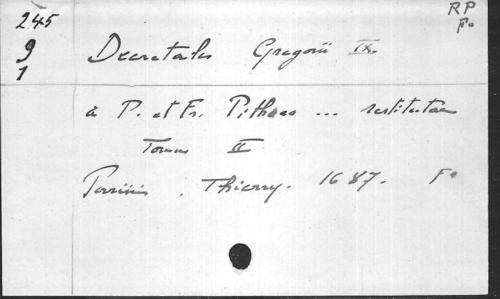 245
9
1
RP
Fo
Decretales Gregorii IX.
a P. et Fr. Pithaeo ... restitutae
Tomus II
Parisiis. Thierry. 1687. Fo